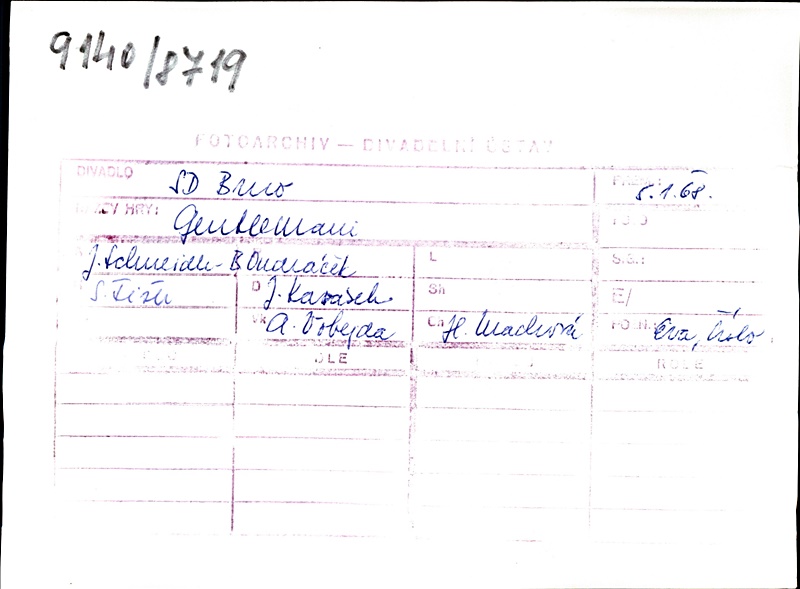 9140/8719
FOTOARCHIV — DIVADELNÍ ÚSTAV
DIVADLO SD Brno 5.1.68.
NÁZEV HRY: Gentlemani
J. Schneider - B Ondráček L S.S.:
S. Fišer D J. Karásek Sh E/
A. Vobejda Ch H. Machová POZN.: Eva, Číslo
ROLE